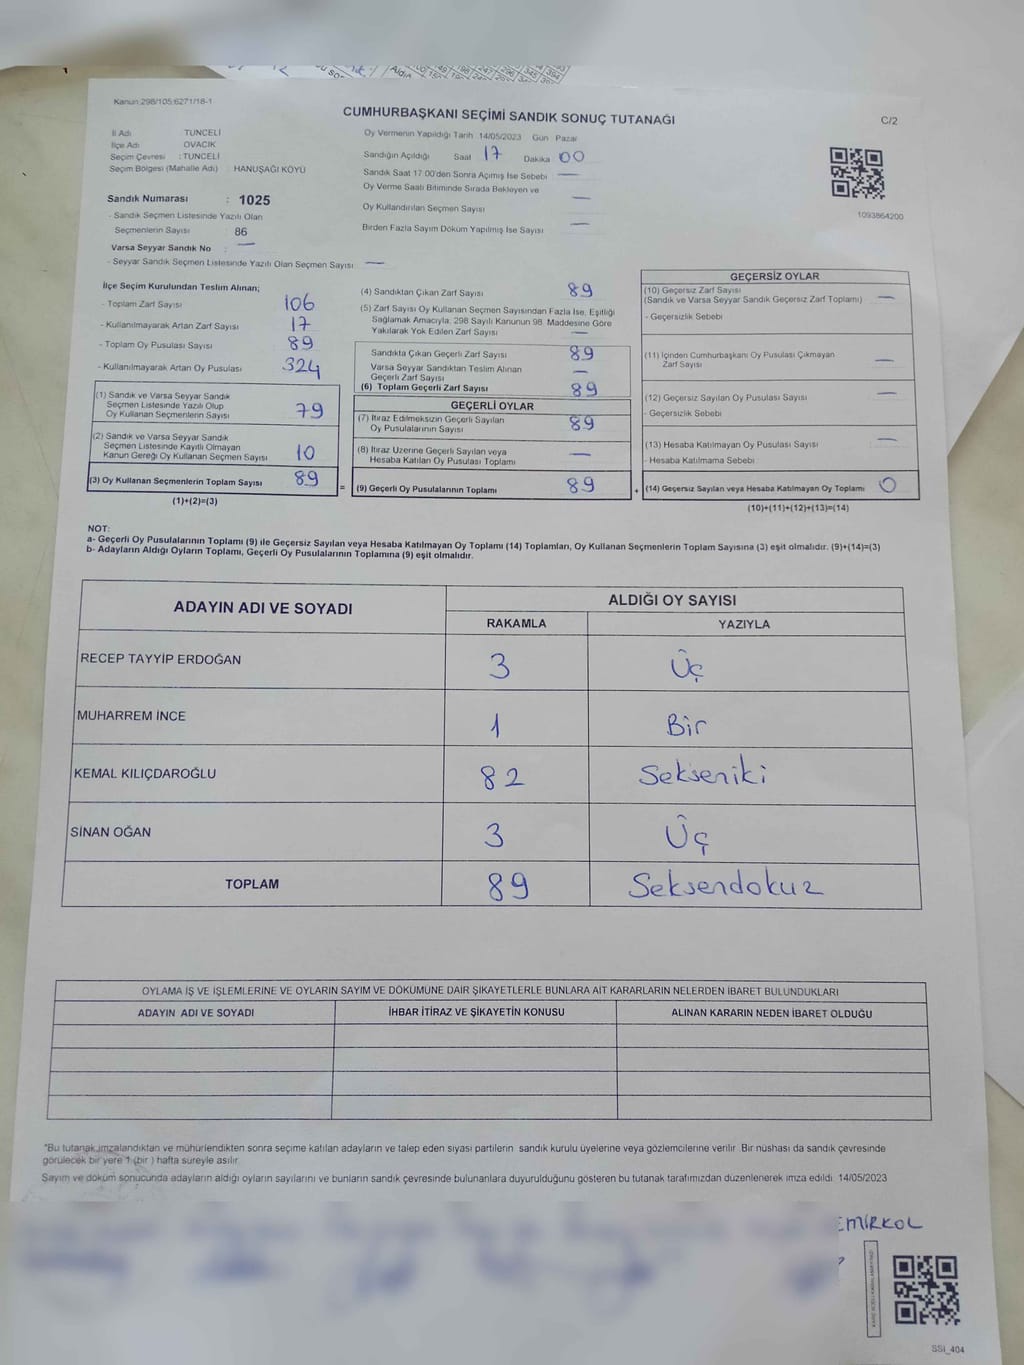 Kanun:298/105:6271/18-1
CUMHURBAŞKANI SEÇİMİ SANDIK SONUÇ TUTANAĞI
C/2
İl Adı TUNCELİ
İlçe Adı OVACIK
Seçim Çevresi : TUNCELİ
Seçim Bölgesi (Mahalle Adı) HANUŞAĞI KÖYÜ
Sandık Numarası : 1025
- Sandık Seçmen Listesinde Yazılı Olan
Seçmenlerin Sayısı 86
Varsa Seyyar Sandık No : —
- Seyyar Sandık Seçmen Listesinde Yazılı Olan Seçmen Sayısı —
Oy Vermenin Yapıldığı Tarih 14/05/2023 Gün Pazar
Sandığın Açıldığı Saat 17 Dakika 00
Sandık Saat 17:00'den Sonra Açımış İse Sebebi —
Oy Verme Saati Bitiminde Sırada Bekleyen ve
Oy Kullandırılan Seçmen Sayısı —
Birden Fazla Sayım Döküm Yapılmış İse Sayısı —
1093864200
İlçe Seçim Kurulundan Teslim Alınan;
- Toplam Zarf Sayısı 106
- Kullanılmayarak Artan Zarf Sayısı 17
- Toplam Oy Pusulası Sayısı 89
- Kullanılmayarak Artan Oy Pusulası 324
(1) Sandık ve Varsa Seyyar Sandık
Seçmen Listesinde Yazılı Olup
Oy Kullanan Seçmenlerin Sayısı 79
(2) Sandık ve Varsa Seyyar Sandık
Seçmen Listesinde Kayıtlı Olmayan
Kanun Gereği Oy Kullanan Seçmen Sayısı 10
(3) Oy Kullanan Seçmenlerin Toplam Sayısı 89
(1)+(2)=(3)
(4) Sandıktan Çıkan Zarf Sayısı 89
(5) Zarf Sayısı Oy Kullanan Seçmen Sayısından Fazla İse, Eşitliği
Sağlamak Amacıyla, 298 Sayılı Kanunun 98. Maddesine Göre
Yakılarak Yok Edilen Zarf Sayısı —
Sandıkta Çıkan Geçerli Zarf Sayısı 89
Varsa Seyyar Sandıktan Teslim Alınan
Geçerli Zarf Sayısı —
(6) Toplam Geçerli Zarf Sayısı 89
GEÇERLİ OYLAR
(7) İtiraz Edilmeksizin Geçerli Sayılan
Oy Pusulalarının Sayısı 89
(8) İtiraz Üzerine Geçerli Sayılan veya
Hesaba Katılan Oy Pusulası Toplamı —
= (9) Geçerli Oy Pusulalarının Toplamı 89
GEÇERSİZ OYLAR
(10) Geçersiz Zarf Sayısı
(Sandık ve Varsa Seyyar Sandık Geçersiz Zarf Toplamı) —
- Geçersizlik Sebebi
(11) İçinden Cumhurbaşkanı Oy Pusulası Çıkmayan
Zarf Sayısı —
(12) Geçersiz Sayılan Oy Pusulası Sayısı —
- Geçersizlik Sebebi
(13) Hesaba Katılmayan Oy Pusulası Sayısı —
- Hesaba Katılmama Sebebi
+ (14) Geçersiz Sayılan veya Hesaba Katılmayan Oy Toplamı 0
(10)+(11)+(12)+(13)=(14)
NOT:
a- Geçerli Oy Pusulalarının Toplamı (9) ile Geçersiz Sayılan veya Hesaba Katılmayan Oy Toplamı (14) Toplamları, Oy Kullanan Seçmenlerin Toplam Sayısına (3) eşit olmalıdır. (9)+(14)=(3)
b- Adayların Aldığı Oyların Toplamı, Geçerli Oy Pusulalarının Toplamına (9) eşit olmalıdır.
ADAYIN ADI VE SOYADI ALDIĞI OY SAYISI
RAKAMLA YAZIYLA
RECEP TAYYİP ERDOĞAN 3 Üç
MUHARREM İNCE 1 Bir
KEMAL KILIÇDAROĞLU 82 Sekseniki
SİNAN OĞAN 3 Üç
TOPLAM 89 Seksendokuz
OYLAMA İŞ VE İŞLEMLERİNE VE OYLARIN SAYIM VE DÖKÜMÜNE DAİR ŞİKAYETLERLE BUNLARA AİT KARARLARIN NELERDEN İBARET BULUNDUKLARI
ADAYIN ADI VE SOYADI İHBAR İTİRAZ VE ŞİKAYETİN KONUSU ALINAN KARARIN NEDEN İBARET OLDUĞU
*Bu tutanak imzalandıktan ve mühürlendikten sonra seçime katılan adayların ve talep eden siyasi partilerin sandık kurulu üyelerine veya gözlemcilerine verilir. Bir nüshası da sandık çevresinde
görülecek bir yere 1 (bir ) hafta süreyle asılır.
Sayım ve döküm sonucunda adayların aldığı oyların sayılarını ve bunların sandık çevresinde bulunanlara duyurulduğunu gösteren bu tutanak tarafımızdan düzenlenerek imza edildi. 14/05/2023
EMİRKOL
SSI_404